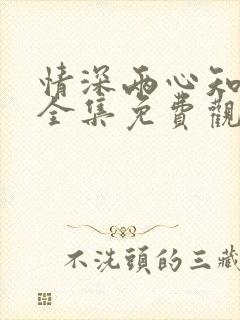 情深兩心知
全集免費觀
不洗頭的三藏